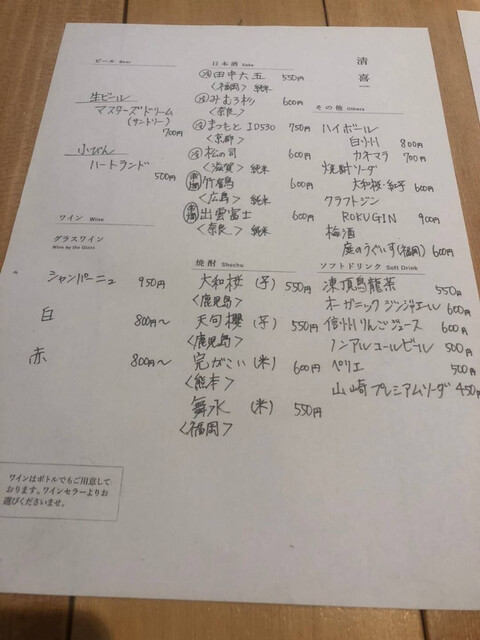 清喜
ビール Beer
生ビール
マスターズドリーム
(サントリー)
700円
小びん
ハートランド
500円
ワイン Wine
グラスワイン
Wine by the Glass
シャンパーニュ 950円
白 800〜
赤 800〜
ワインはボトルでもご用意して
おります。ワインセラーよりお
選びくださいませ。
日本酒 Sake
冷 田中六五 550円
<福岡> 純米
冷 みむろ杉 600円
<奈良>
冷 まつもと ID530 750円
<京都>
冷 松の司 600円
<滋賀> 純米
竹鶴 600円
<広島> 純米
出雲富士 600円
<奈良> 純米
焼酎 Shochu
大和桜 (芋) 550円
<鹿児島>
天句櫻 (芋) 550円
<鹿児島>
完がこい (米) 600円
<熊本>
舞水 (米) 550円
<福岡>
その他 Others
ハイボール
白州 800円
カネマラ 700円
焼酎ソーダ
大和桜・紅芋 600円
クラフトジン
ROKU GIN 900円
梅酒
庭のうぐいす(福岡) 600円
ソフトドリンク Soft Drink
凍頂烏龍茶 550円
オーガニックジンジャエール 600円
信州りんごジュース 600円
ノンアルコールビール 500円
ペリエ 500円
山崎プレミアムソーダ 450円